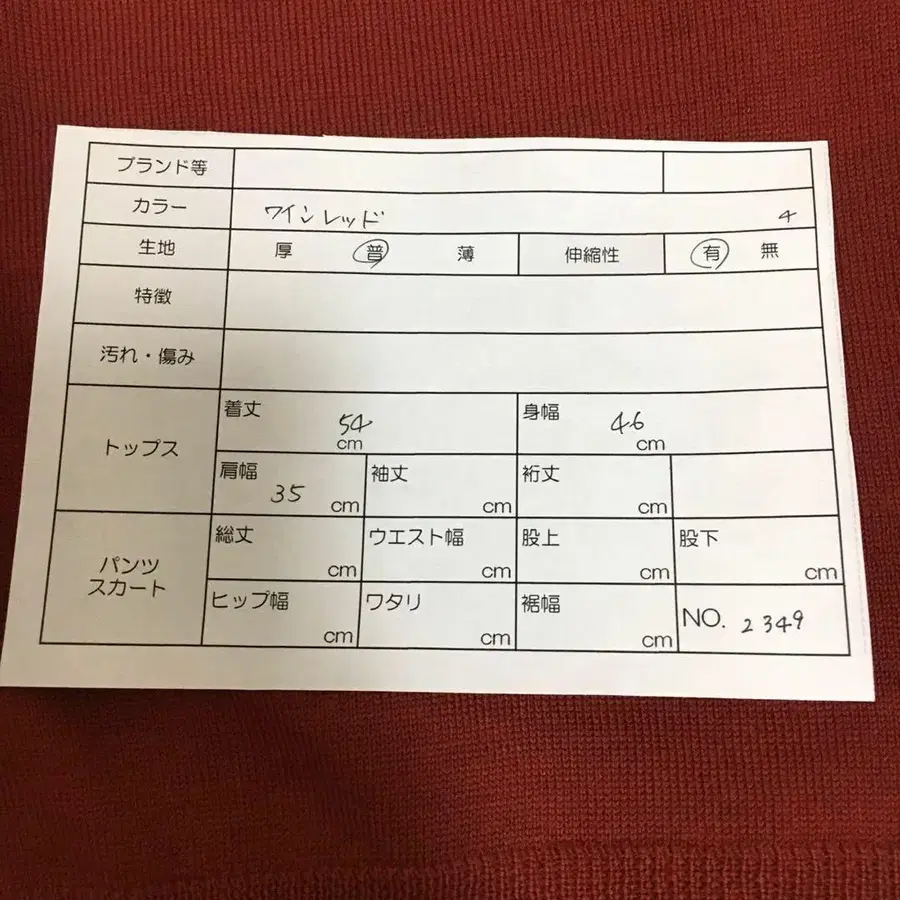 ブランド等
カラー ワインレッド 4
生地 厚 普 薄 伸縮性 有 無
特徴
汚れ・傷み
トップス
着丈 54 cm 身幅 46 cm
肩幅 35 cm 袖丈 cm 裄丈 cm
パンツ
スカート
総丈 cm ウエスト幅 cm 股上 cm 股下 cm
ヒップ幅 cm ワタリ cm 裾幅 cm NO. 2349